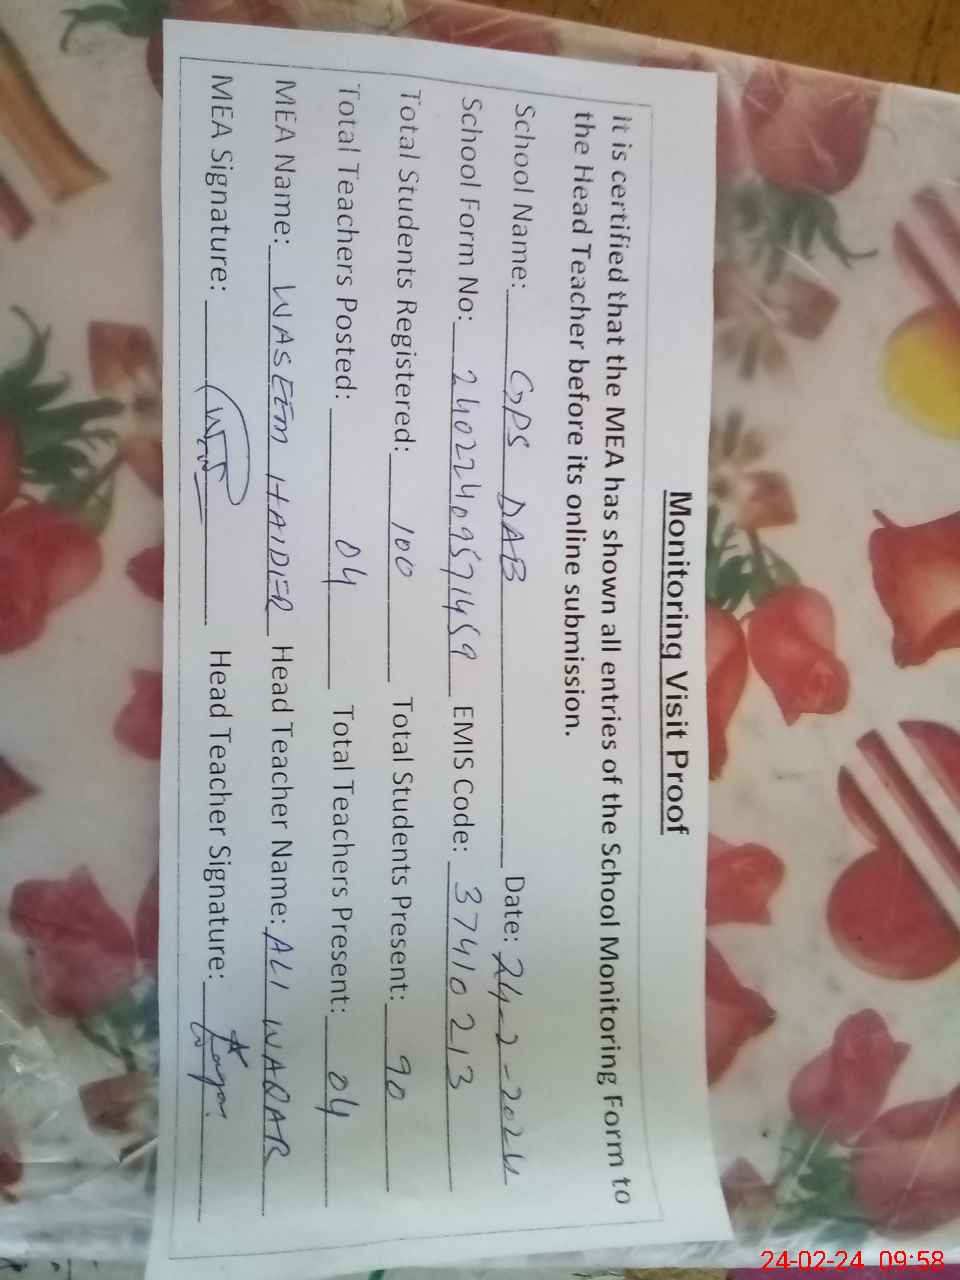 Monitoring Visit Proof
It is certified that the MEA has shown all entries of the School Monitoring Form to
the Head Teacher before its online submission.
School Name: GPS DAB Date: 24-2-2024
School Form No: 24022409571459 EMIS Code: 37410213
Total Students Registered: 100 Total Students Present: 90
Total Teachers Posted: 04 Total Teachers Present: 04
MEA Name: WASEEM HAIDER Head Teacher Name: ALI WAQAR
MEA Signature: Head Teacher Signature:
24-02-24 09:58